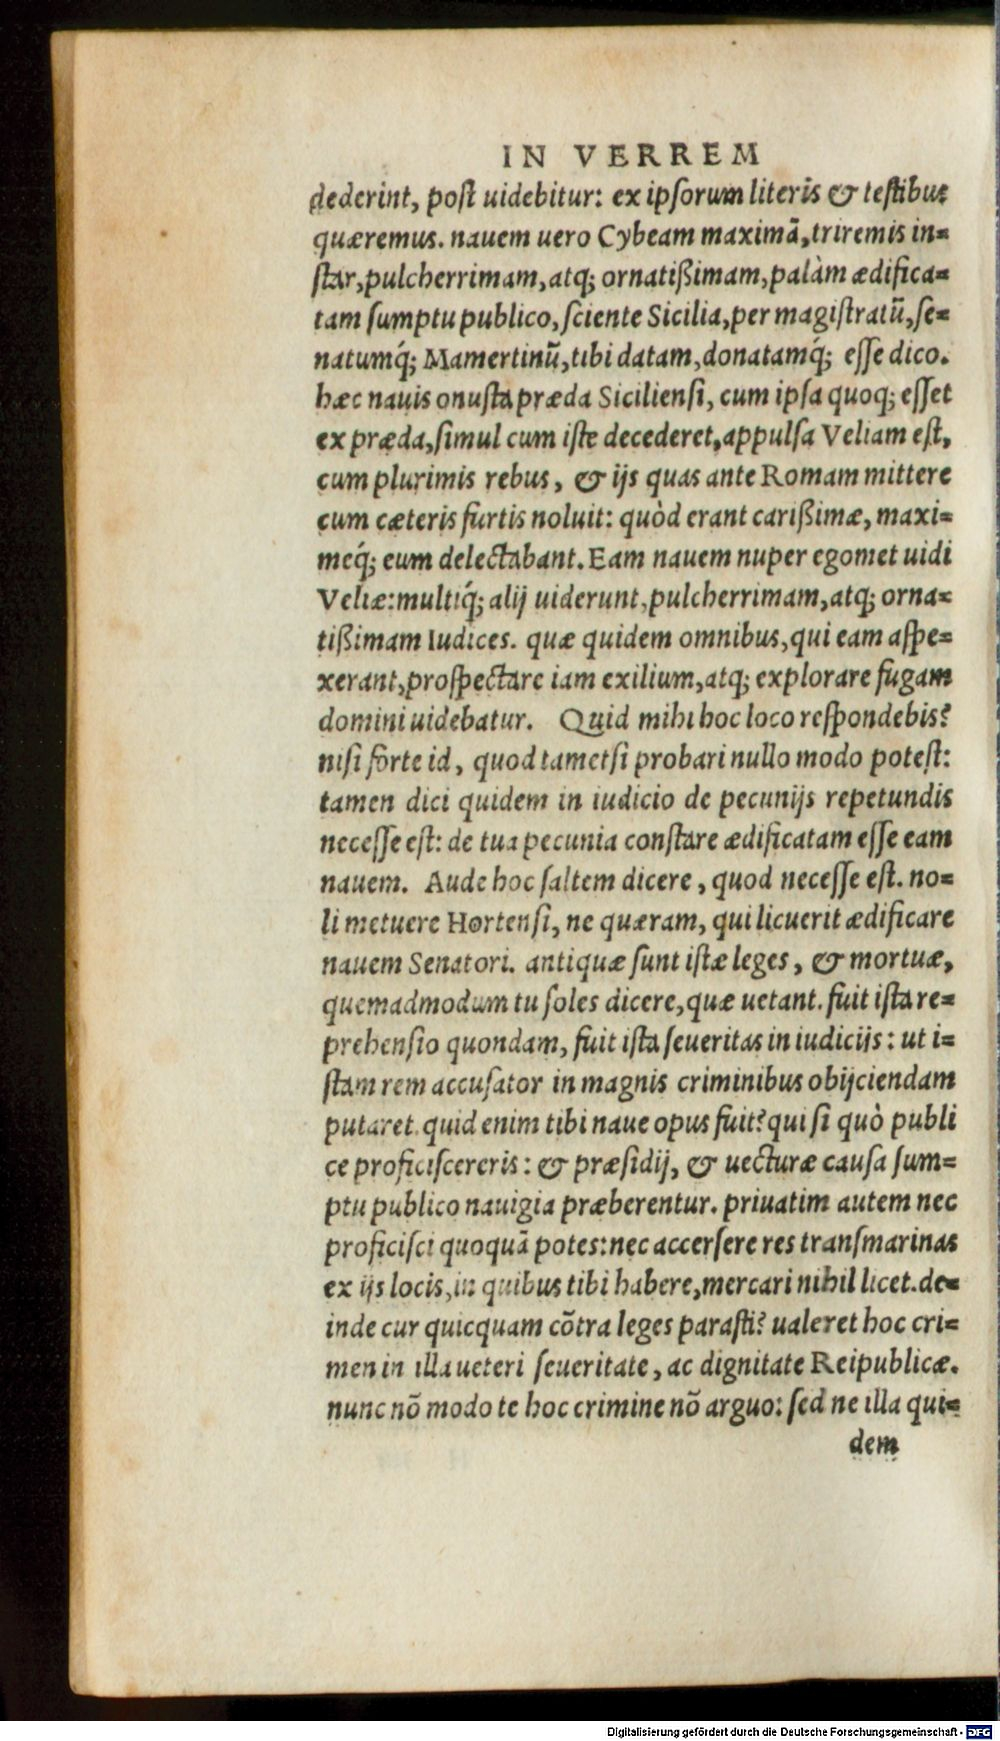 IN VERREM
dederint, post uidebitur: ex ipsorum literis & testibus
quæremus. nauem uero Cybeam maximā, triremis in=
star, pulcherrimam, atq; ornatißimam, palàm ædifica=
tam sumptu publico, sciente Sicilia, per magistratū, se=
natumq́; Mamertinū, tibi datam, donatamq́; esse dico.
hæc nauis onusta præda Siciliensi, cum ipsa quoq; esset
ex præda, simul cum iste decederet, appulsa Veliam est,
cum plurimis rebus, & ijs quas ante Romam mittere
cum cæteris furtis noluit: quòd erant carißimæ, maxi=
meq́; eum delectabant. Eam nauem nuper egomet uidi
Veliæ: multiq́; alij uiderunt, pulcherrimam, atq; orna=
tißimam Iudices. quæ quidem omnibus, qui eam aspe=
xerant, prospectare iam exilium, atq; explorare fugam
domini uidebatur. Quid mihi hoc loco respondebis?
nisi forte id, quod tametsi probari nullo modo potest:
tamen dici quidem in iudicio de pecunijs repetundis
necesse est: de tua pecunia constare ædificatam esse eam
nauem. Aude hoc saltem dicere, quod necesse est. no=
li metuere Hortensi, ne quæram, qui licuerit ædificare
nauem Senatori. antiquæ sunt istæ leges, & mortuæ,
quemadmodum tu soles dicere, quæ uetant. fuit ista re=
prehensio quondam, fuit ista seueritas in iudiciis: ut i=
stam rem accusator in magnis criminibus obijciendam
putaret. quid enim tibi naue opus fuit? qui si quò publi
ce proficiscereris: & præsidij, & uecturæ causa sum=
ptu publico nauigia præberentur. priuatim autem nec
proficisci quoquā potes: nec accersere res transmarinas
ex ijs locis, in quibus tibi habere, mercari nihil licet. de=
inde cur quicquam cōtra leges parasti? ualeret hoc cri=
men in illa ueteri seueritate, ac dignitate Reipublicæ.
nunc nō modo te hoc crimine nō arguo: sed ne illa qui=
dem
Digitalisierung gefördert durch die Deutsche Forschungsgemeinschaft - DFG